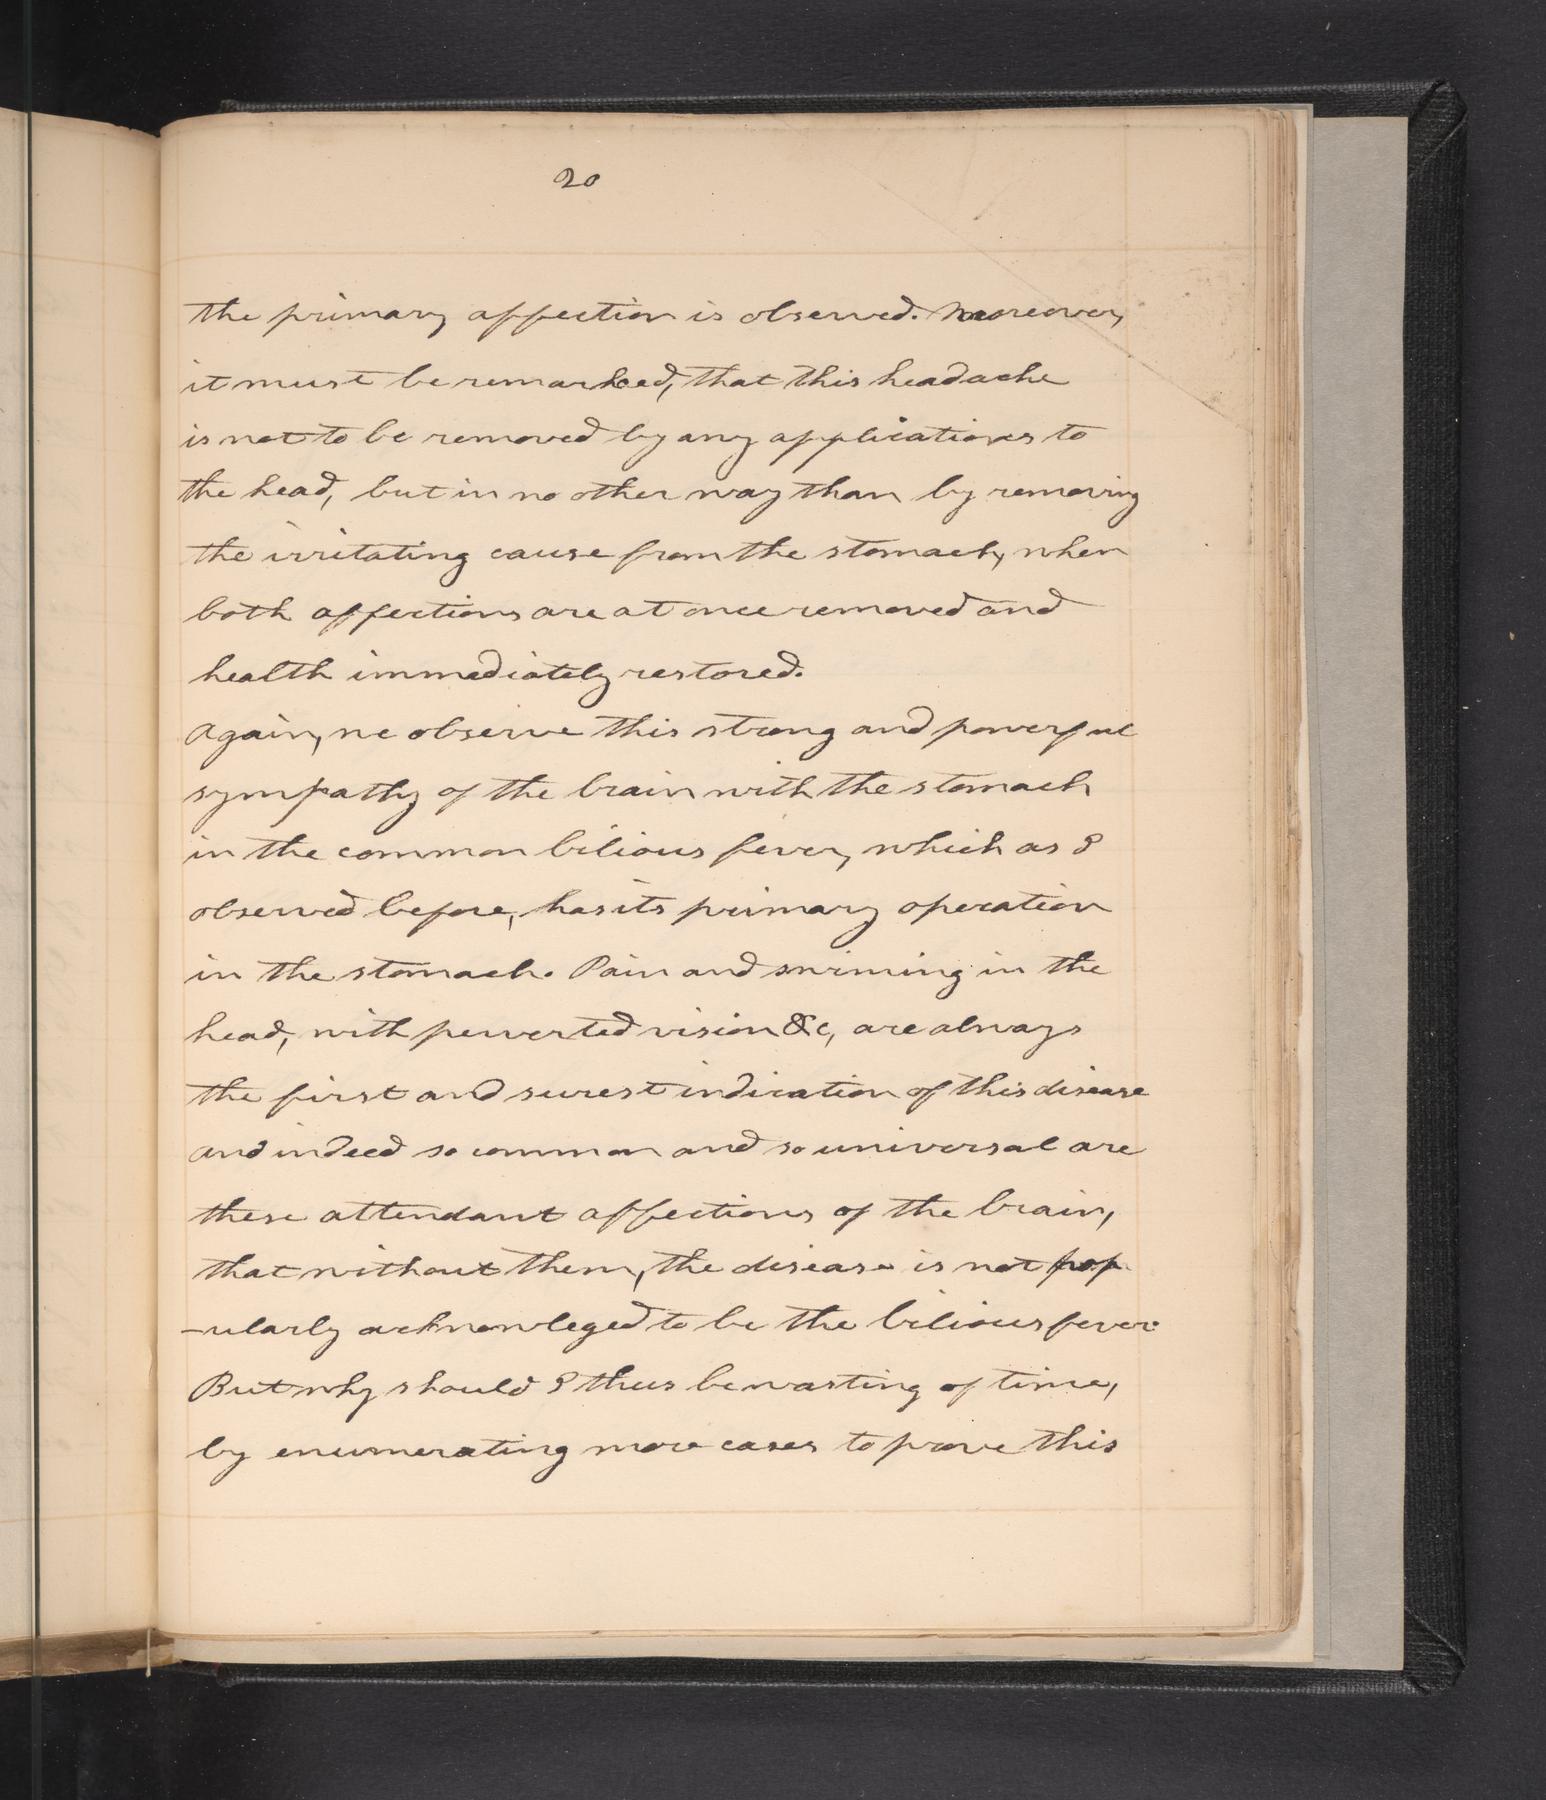 20
the primary affection is observed. Moreover,
it must be remarked, that this headache
is not to be removed by any applications to
the head, but in no other way than by removing
the irritating cause from the stomach, when
both affections are at once removed and
health immediately restored.
Again, we observe this strong and powerful
sympathy of the brain with the stomach
in the common bilious fever, which as I
observed before, has its primary operation
in the stomach. Pain and swiming in the
head, with perverted vision &c, are always
the first and surest indication of this disease
and indeed so common and so universal are
these attendant affections of the brain,
that without them, the disease is not pop
-ularly acknowleged to be the bilious fever.
But why should I thus be wasting of time,
by enumerating more cases to prove this